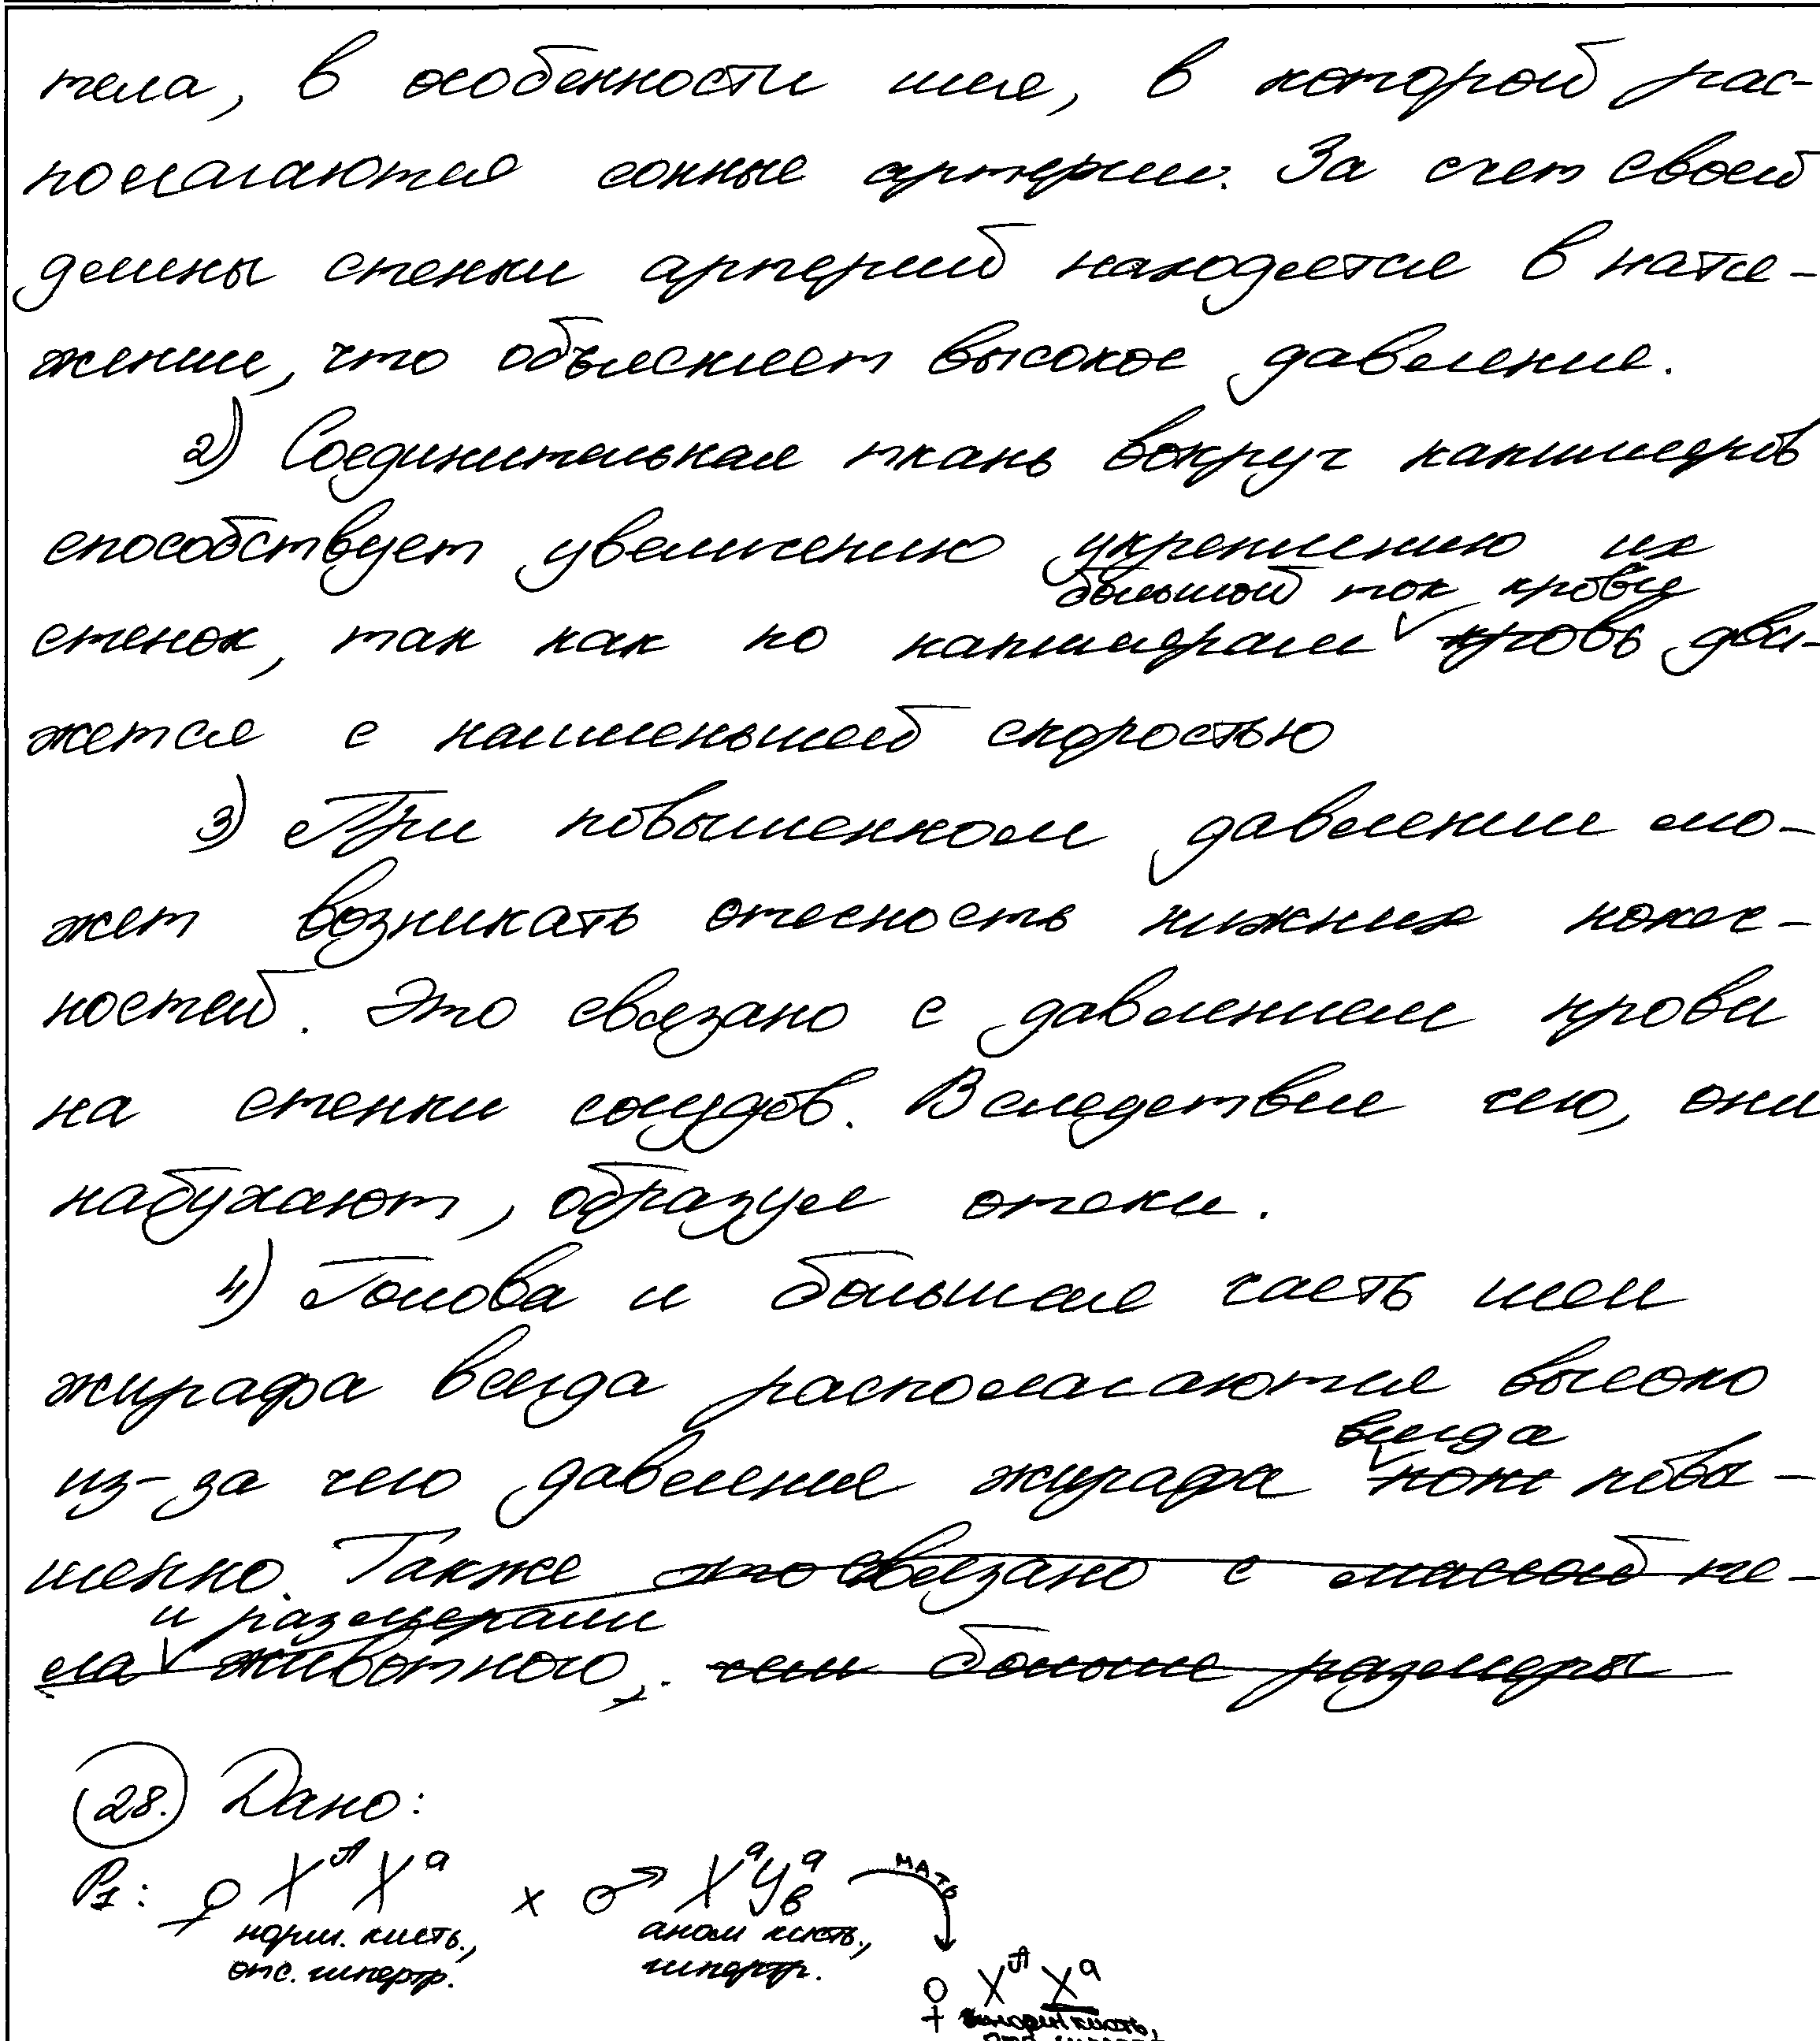 тела, в особенности шея, в которой рас-
полагаются сонные артерии. За счет своей
длины стенки артерий находятся в натя-
жении, что объясняет высокое давление.
2) Соединительная ткань вокруг капилляров
способствует увеличению укреплению их
большой ток крови
стенок, так как по капиллярам кровь дви-
жется с наименьшей скоростью
3) При повышенном давлении мо-
жет возникать отечность нижних конеч-
ностей. Это связано с давлением крови
на стенки сосудов. Вследствие чего, они
набухают, образуя отеки.
4) Голова и большая часть шеи
жирафа всегда располагаются высоко
из-за чего давление жирафа всегда повы-
шенно. Также это связано с массой те-
и размерами
ла животного, чем больше размеры
28. Дано:
P₁: ♀ Xᴬ Xᵃ × ♂ XᵃYᵃв МАТЬ
норм. кисть., аном кисть.,
отс. гипертр. гипертр.
♀ Xᴬ Xᵃ
норм кисть,